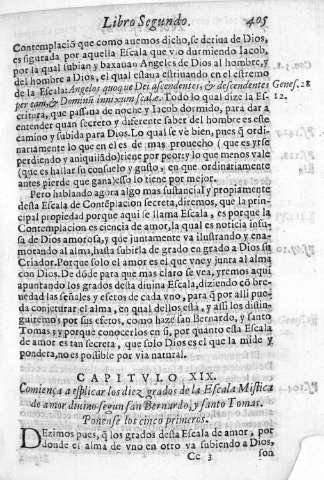 Libro Segundo. 405
Contemplaciō que como auemos dicho, se deriua de Dios,
es figurada por aquella Escala que vio durmiendo Iacob,
por la qual subian y baxauan Angeles de Dios al hombre, y
del hombre a Dios, el qual estaua estriuando en el estremo
de la Escala: Angelos quoque Dei ascendentes, & descendentes Genes. 28
per eam, & Dominū innixum scalæ. Todo lo qual dize la Es- 12.
critura, que passaua de noche y Iacob dormido, para dar a
entender quan secreto y diferente saber del hombre es este
camino y subida para Dios. Lo qual se vè bien, pues q̄ ordi-
nariamente lo que en el es de mas prouecho (que es yrse
perdiendo y aniquilādo) tiene por peor; y lo que menos vale
(que es hallar su consuelo y gusto, en que ordinariamente
antes pierde que gana) esso lo tiene por mejor.
Pero hablando agora algo mas sustancial y propiamente
desta Escala de Contēplacion secreta, diremos, que la prin-
cipal propiedad porque aqui se llama Escala, es porque la
Contemplacion es ciencia de amor, la qual es noticia infu-
sa de Dios amorosa, y que juntamente va ilustrando y ena-
morando al alma, hasta subirla de grado en grado a Dios su
Criador. Porque solo el amor es el que vne y junta al alma
con Dios. De dōde para que mas claro se vea, yremos aqui
apuntando los grados desta diuina Escala, diziendo cō bre-
uedad las señales y efetos de cada vno, para q̄ por alli pue-
da conjeturar el alma, en qual dellos està, y assi los distin-
guiremos por sus efetos, como haze san Bernardo, y santo
Tomas, y porque conocerlos en si, por quanto esta Escala
de amor es tan secreta, que solo Dios es el que la mide y
pondera, no es possible por via natural.
CAPITVLO XIX.
Comiença a esplicar los diez grados de la Escala Mistica
de amor diuino segun san Bernardo, y santo Tomas.
Ponense los cinco primeros.
DEzimos pues, q̄ los grados desta Escala de amor, por
donde el alma de vno en otro va subiendo a Dios,
Cc 3 son